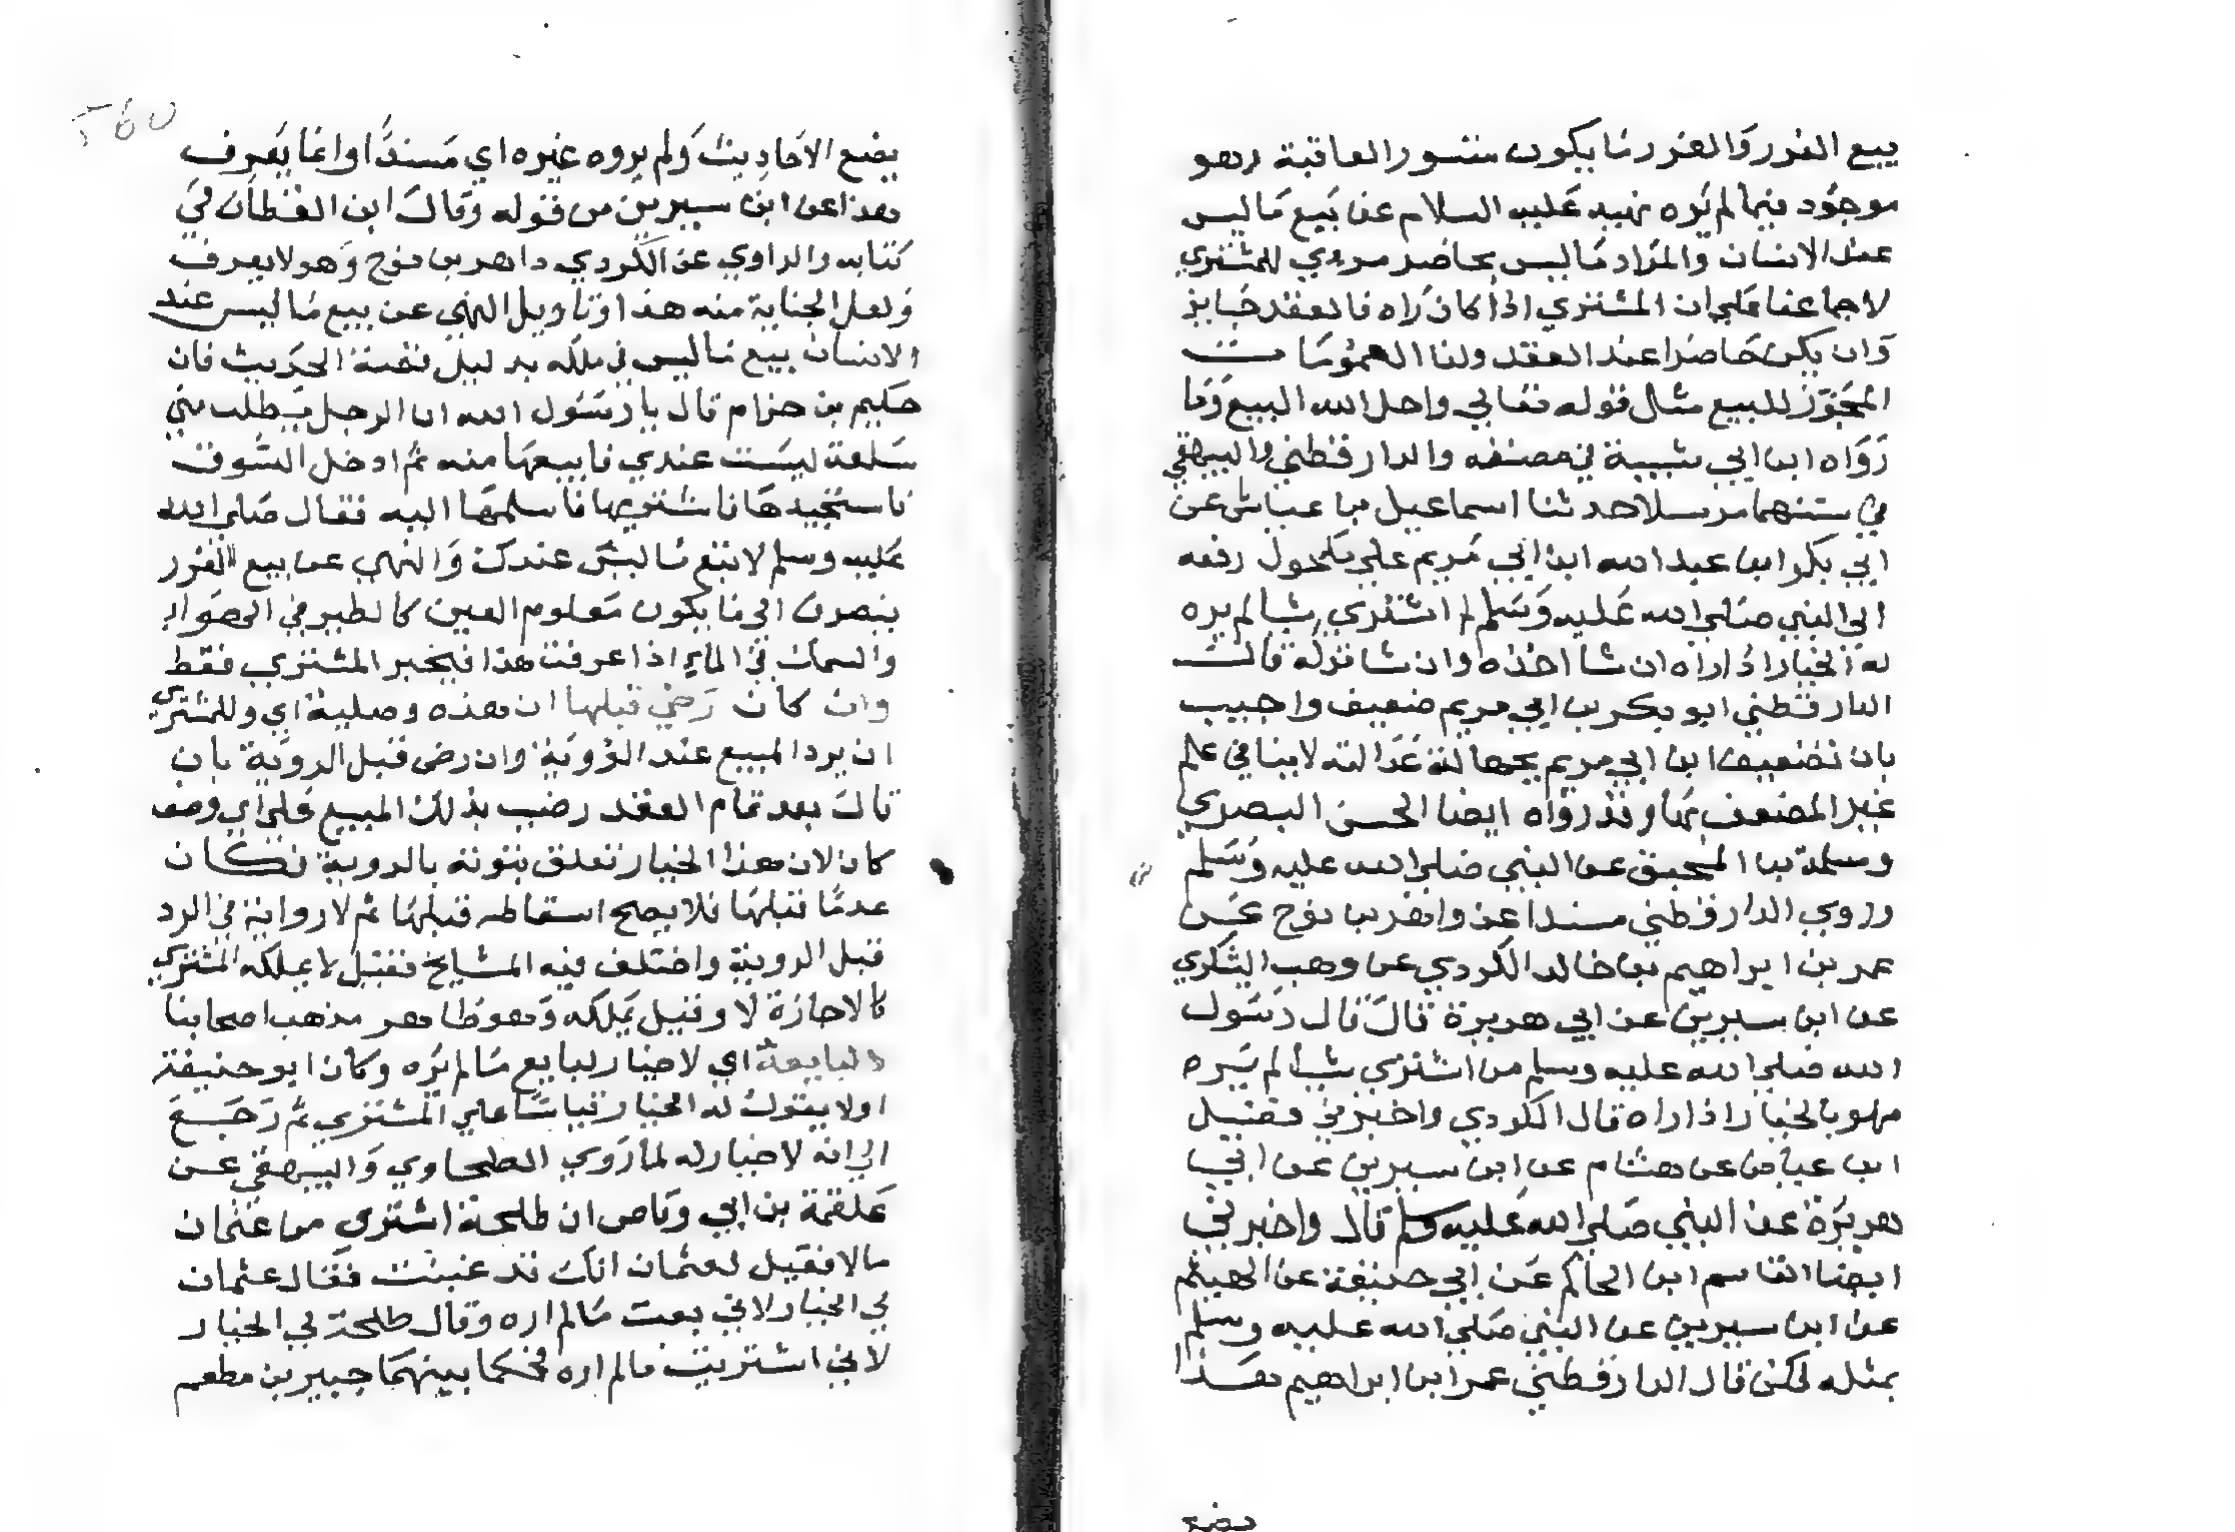 بيع الغرر والغرر ما يكون مستور العاقبة وهو
موجود فيما لم يره نهيه عليه السلام عن بيع ما ليس
عند الانسان والمراد ما ليس بحاضر مروي للمشتري
لاجماعنا على ان المشتري اذا كان راه فالعقد جايز
وان يكن حاضرا عند العقد ولنا العمومات
المجوز للبيع مثل قوله تعالى واحل الله البيع وما
رواه ابن ابي شيبة في مصنفه والدار قطني والبيهقي
في سننهما مرسلا حدثنا اسماعيل بن عياش عن
ابي بكر ابن عبد الله ابن ابي مريم على مكحول رفعه
الى النبي صلى الله عليه وسلم اشترى شيا لم يره
له الخيار اذا راه ان شا اخذه وان شا تركه قال
الدار قطني ابو بكر بن ابي مريم ضعيف واجيب
بان تضعيف ابن ابي مريم بجهالة عدالته لا ينافي علم
غير المضعف بها وقد رواه ايضا الحسن البصري
وسلمة بن المحبق عن النبي صلى الله عليه وسلم
وروى الدار قطني مسندا عن داهر بن نوح عن
عمر بن ابراهيم بن خالد الكردي عن وهب اليشكري
عن ابن سيرين عن ابي هريرة قال قال رسول
الله صلى الله عليه وسلم من اشترى شيا لم يره
فهو بالخيار اذا راه قال الكردي واخبرني فضيل
ابن عياض عن هشام عن ابن سيرين عن ابي
هريرة عن النبي صلى الله عليه وسلم قال واخبرني
ايضا القاسم ابن الحاكم عن ابي حنيفة عن الهيثم
عن ابن سيرين عن النبي صلى الله عليه وسلم
بمثله لكن قال الدار قطني عمر ابن ابراهيم هذا
يضع
٢٦٥
يضع الاحاديث ولم يروه غيره اي مسندا وانما يعرف
هذا عن ابن سيرين من قوله وقال ابن القطان في
كتابه والراوي عن الكردي داهر بن نوح وهو لا يعرف
ولعل الجناية منه هذا وتاويل النهي عن بيع ما ليس عند
الانسان بيع ما ليس في ملكه بدليل قصة الحديث فان
حكيم بن حزام قال يا رسول الله ان الرجل يطلب مني
سلعة ليست عندي فابيعها منه ثم ادخل السوق
فاستجيدها فاشتريها فاسلمها اليه فقال صلى الله
عليه وسلم لا تبع ما ليس عندك والنهي عن بيع الغرر
ينصرف الى ما يكون معلوم العين كالطير في الهوا
والسمك في الماء اذا عرفت هذا فيخير المشتري فقط
وان كان رضي قبلها ان هذه وصلية اي وللمشتري
ان يرد المبيع عند الرؤية وان رضى قبل الروية بان
قال بعد تمام العقد رضيت بذلك المبيع على اي وصف
كان لان هذا الخيار تعلق بثوته بالروية فكان
عدما قبلها فلا يصح اسقاطه قبلها ثم لا رواية في الرد
قبل الروية واختلف فيه المشايخ فقيل لا يملكه المشتري
كالاجازة لا وقيل يملكه وهو ظاهر مذهب اصحابنا
لا لبايعه اي لا خيار لبايع ما لم يره وكان ابو حنيفة
اولا يقول له الخيار قياسا على المشتري ثم رجع
الى انه لا خيار له لما روى الطحاوي والبيهقي عن
علقمة بن ابي وقاص ان طلحة اشترى من عثمان
مالا فقيل لعثمان انك قد غبنت فقال عثمان
لي الخيار لاني بعت ما لم اره وقال طلحة لي الخيار
لاني اشتريت ما لم اره فحكما بينهما جبير بن مطعم